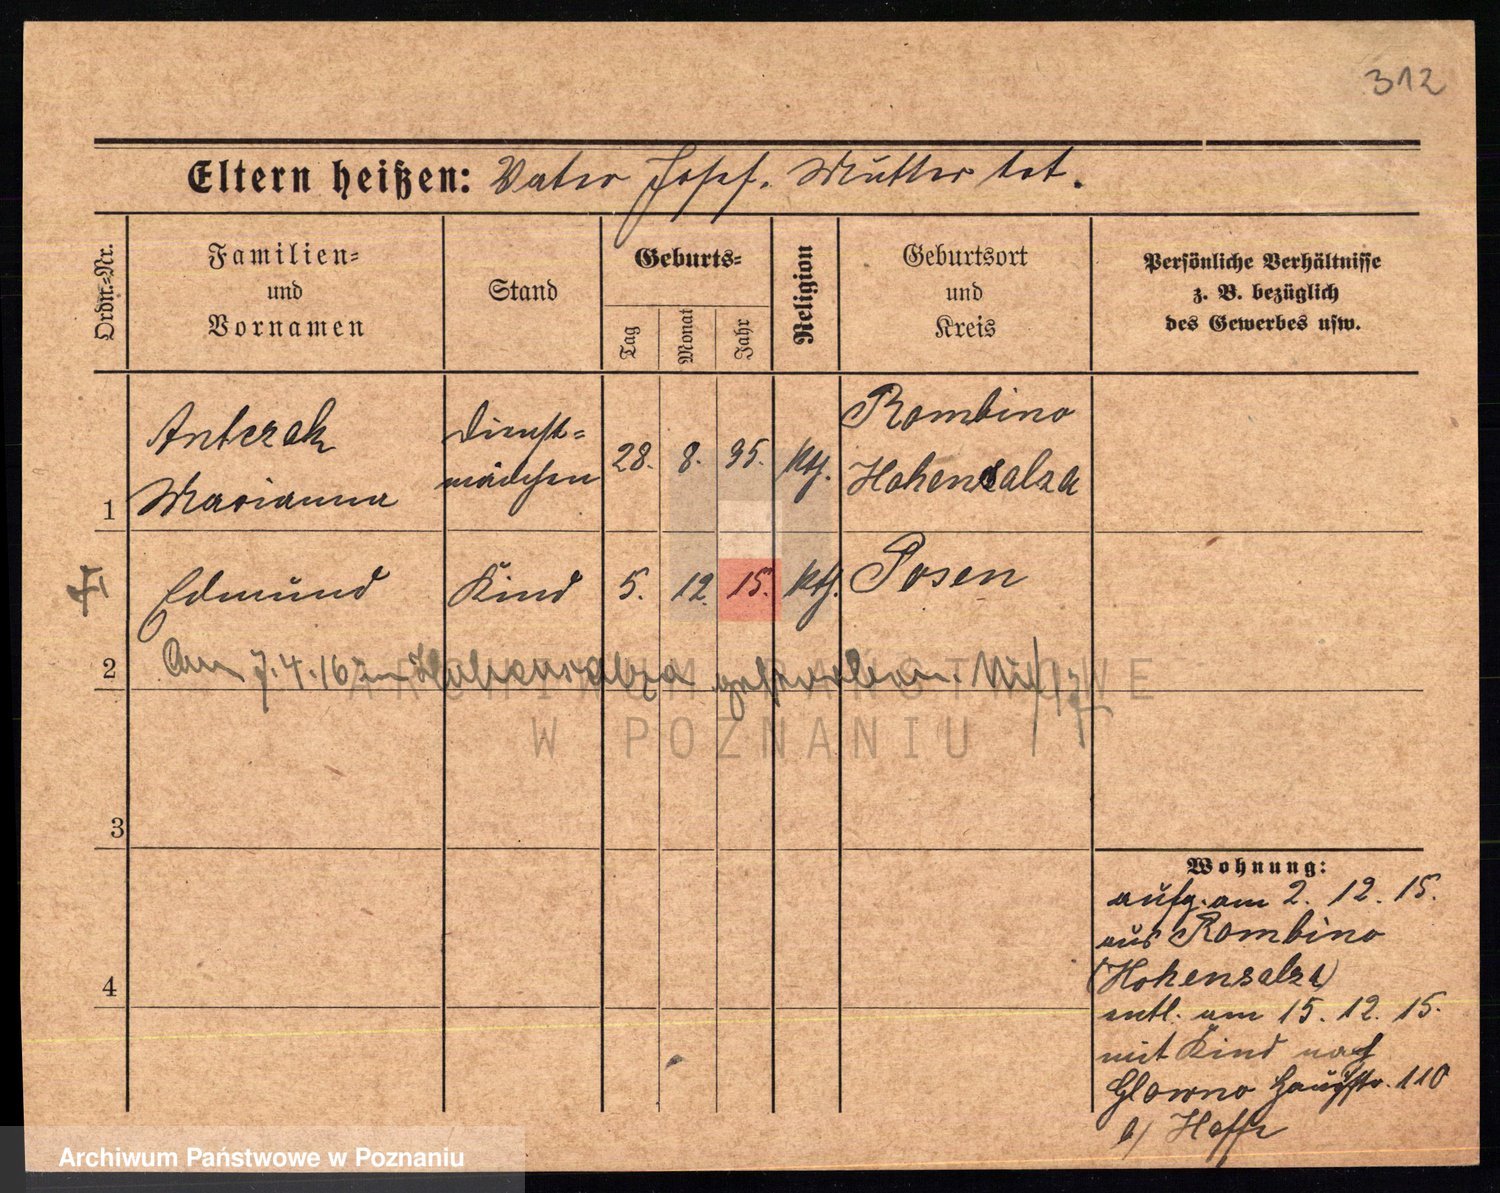 312
Eltern heißen: Vater Josef. Mutter tot.
Ordn.-Nr.
Familien-
und
Vornamen
Stand
Geburts-
Tag
Monat
Jahr
Religion
Geburtsort
und
Kreis
Persönliche Verhältnisse
z. B. bezüglich
des Gewerbes usw.
1
Antczak
Marianna
Dienst-
mädchen
28. 8. 95. kth.
Rombino
Hohensalza
2
Edmund Kind 5. 12. 15. kth. Posen
Am 7.4.16 in Hohensalza gestorben.
3
4
Wohnung:
aufg. am 2. 12. 15.
aus Rombino
(Hohensalza)
entl. am 15. 12. 15.
mit Kind nach
Glowno Hauptstr. 110
b/
ARCHIWUM PAŃSTWOWE
W POZNANIU
Archiwum Państwowe w Poznaniu